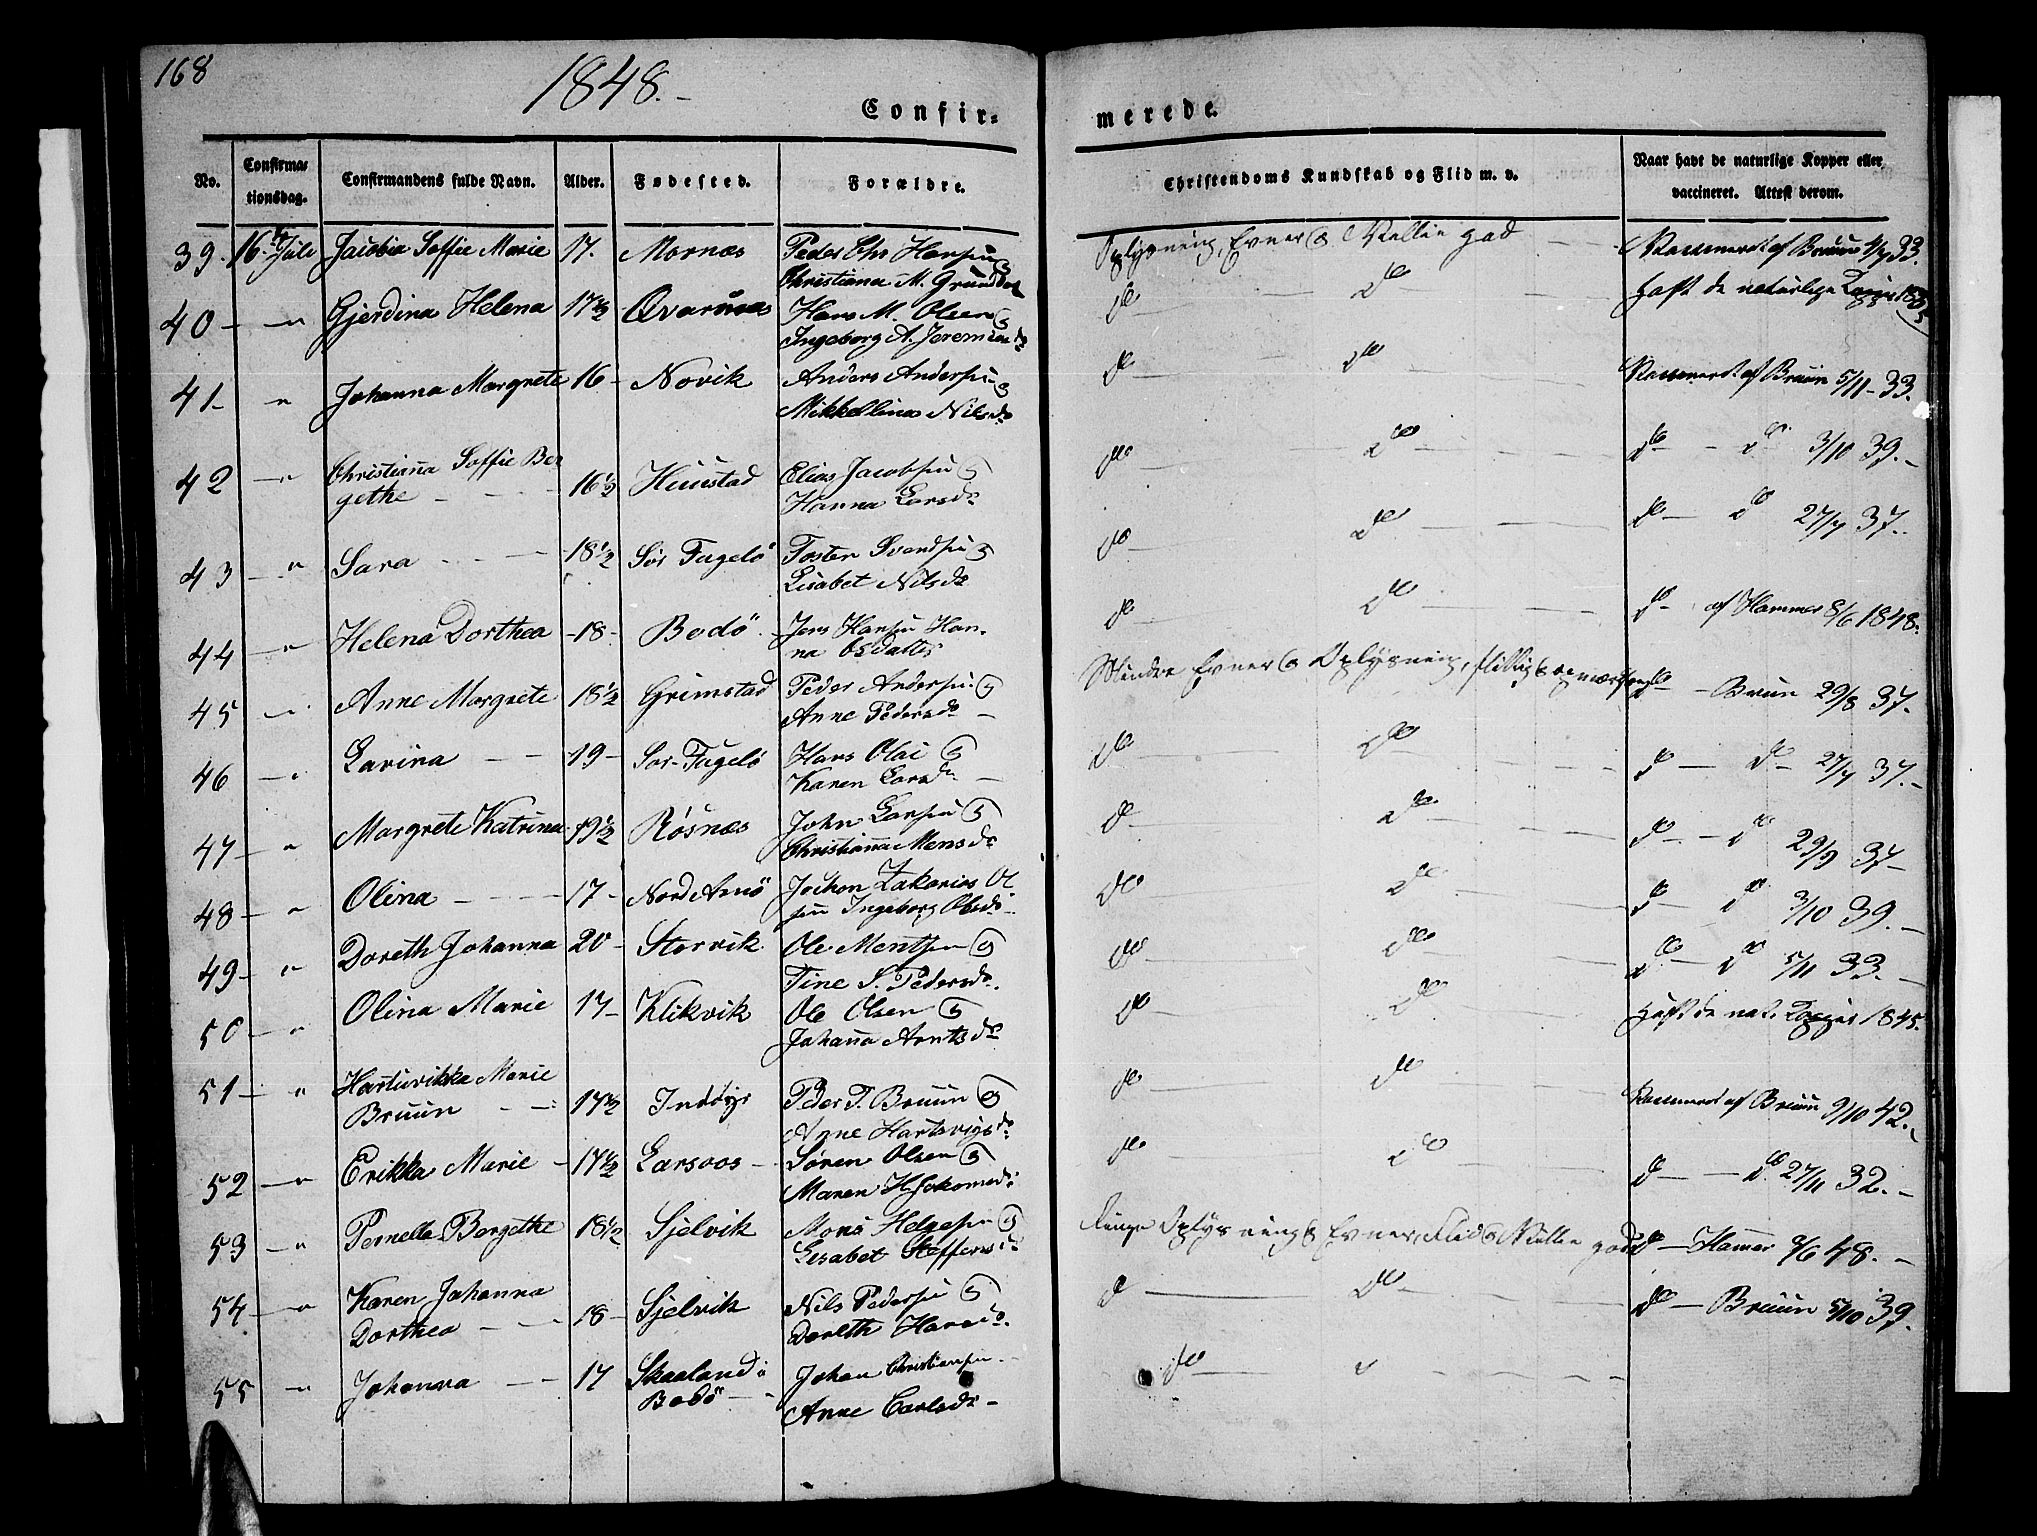 168
1848.-
Confir-
merede.
No.
Confirma-
tionsdag.
Confirmandens fulde Navn.
Alder.
Fødested.
Forældre.
Christendoms Kundskab og Flid m. v.
Naar havt de naturlige Kopper eller
vaccineret. Attest derom.
39. 16 Juli Jacobia Soffie Marie 17. Mornæs Peder Chr Hansen &
Christiana M. Oplysning, Evner & Villie god Vaccineret af Bruun 33.
40 - " Gjerdina Helena 17½ Hans M. Olsen &
Ingeborg A. Jeremiasd. do - do Haft de naturlige Kopper
41 - " Johanna Margrete 16 - Novik Anders Andersen &
Mikkelina Nilsd. do do Vaccineret af Bruun 5/11-33.
42 - " Christiana Soffie Ber
gethe - 16½ Huustad Elias Jacobsen &
Hanna Larsd. do do do - do 3/10 39.-
43 - " Sara - 18½ Sør Fugelö Toster Svendsen &
Lisabet Nilsd. do do do - do 27/7 37.
44 - " Helena Dorthea - 18 - Bodö. Jens Hansen Han-
na do do do - af Hammer 8/6 1848.
45 - " Anne Margrete 18½ Grimstad Peder Andersen &
Anne Pedersd. Mindre Evner & Oplysning, flittig & do - Bruun 29/8 37.
46 - " Larina - 19 - Sør-Fugelö Hans Olai &
Karen Larsd. do do do - do 27/7 37.-
47 - " Margrete Katrina 19½ Røsnæs John Larsen &
Christianna Monsd. do do do - do 29/9 37-
48 - " Olina - 17 - Nord Arnö Jochon Zakarias Ol-
sen Ingeborg Olsd. do do do - do 3/10 39.-
49 - " Doreth Johanna 20 - Storvik Ole Mentsen &
Tine S. Pedersd. do do do - do 5/11 33.-
50 - " Olina Marie 17 - Klikvik Ole Olsen &
Johanna Arntsd. do do Haft de nat. Kopper 1845.
51 - " Hartuvikka Marie
Bruun - 17½ Indøyr Peder T. Bruun &
Anne Hartvigsd. do do Vaccineret af Bruun 9/10 42.-
52 - " Erikka Marie - 17½ Larsoos - Søren Olsen &
Maren do do do - do 27/11 32.-
53 - " Pernella Bergethe 18½ Sjelvik Mons Helgesen &
Lesabet Steffensd. Ringe Oplysning & Evner, Flid & Villie god do - Hamer 8/6 48.-
54 - " Karen Johanna
Dorthea - 18 - Sjelvik Nils Pedersen &
Doreth Hansd. do do do - Bruun 5/10 39.
55 - " Johanna - 17 Skaaland i
Bodö - Johan Christiansen -
Anne Carlsd. - do "